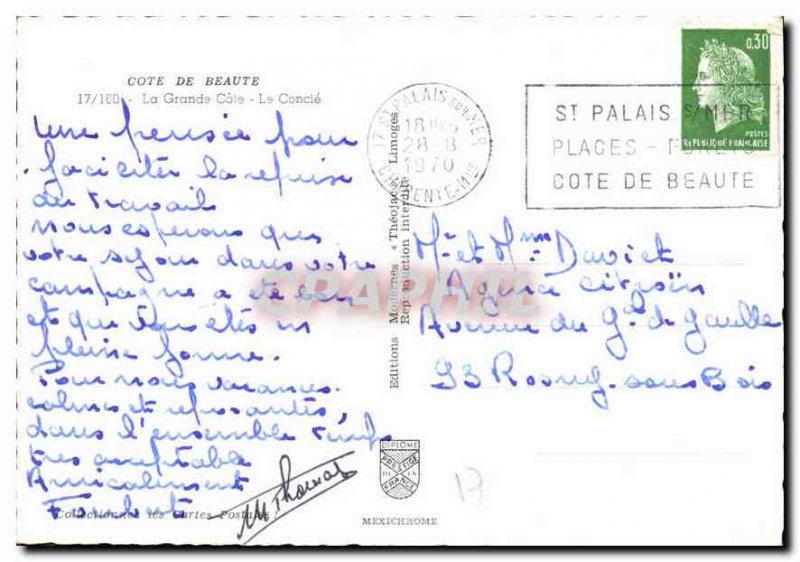 COTE DE BEAUTE
17/160 - La Grande Côte - Le Concié
Une pensée pour
faciliter la reprise
du travail
nous espérons que
votre séjour dans votre
campagne a été bon
et que vous êtes en
pleine forme.
Pour nous vacances
calmes et reposantes,
dans l'ensemble temps
très acceptable
Amicalement
M Thomas
Collection des Cartes Postales
Editions Modernes « Théojac » Limoges
Reproduction interdite
17 ST PALAIS SUR MER
18H
28-8
1970
CHARENTE-Mme
ST PALAIS S/MER
PLAGES - FORETS
COTE DE BEAUTE
0,30
POSTES
REPUBLIQUE FRANCAISE
Mr et Mme Daviet
Agence Citroën
Avenue du Gal de Gaulle
93 Rosny-sous-Bois
DIPLOME
PRESTIGE
DE LA
FRANCE
17
MEXICHROME
CPAPHIL